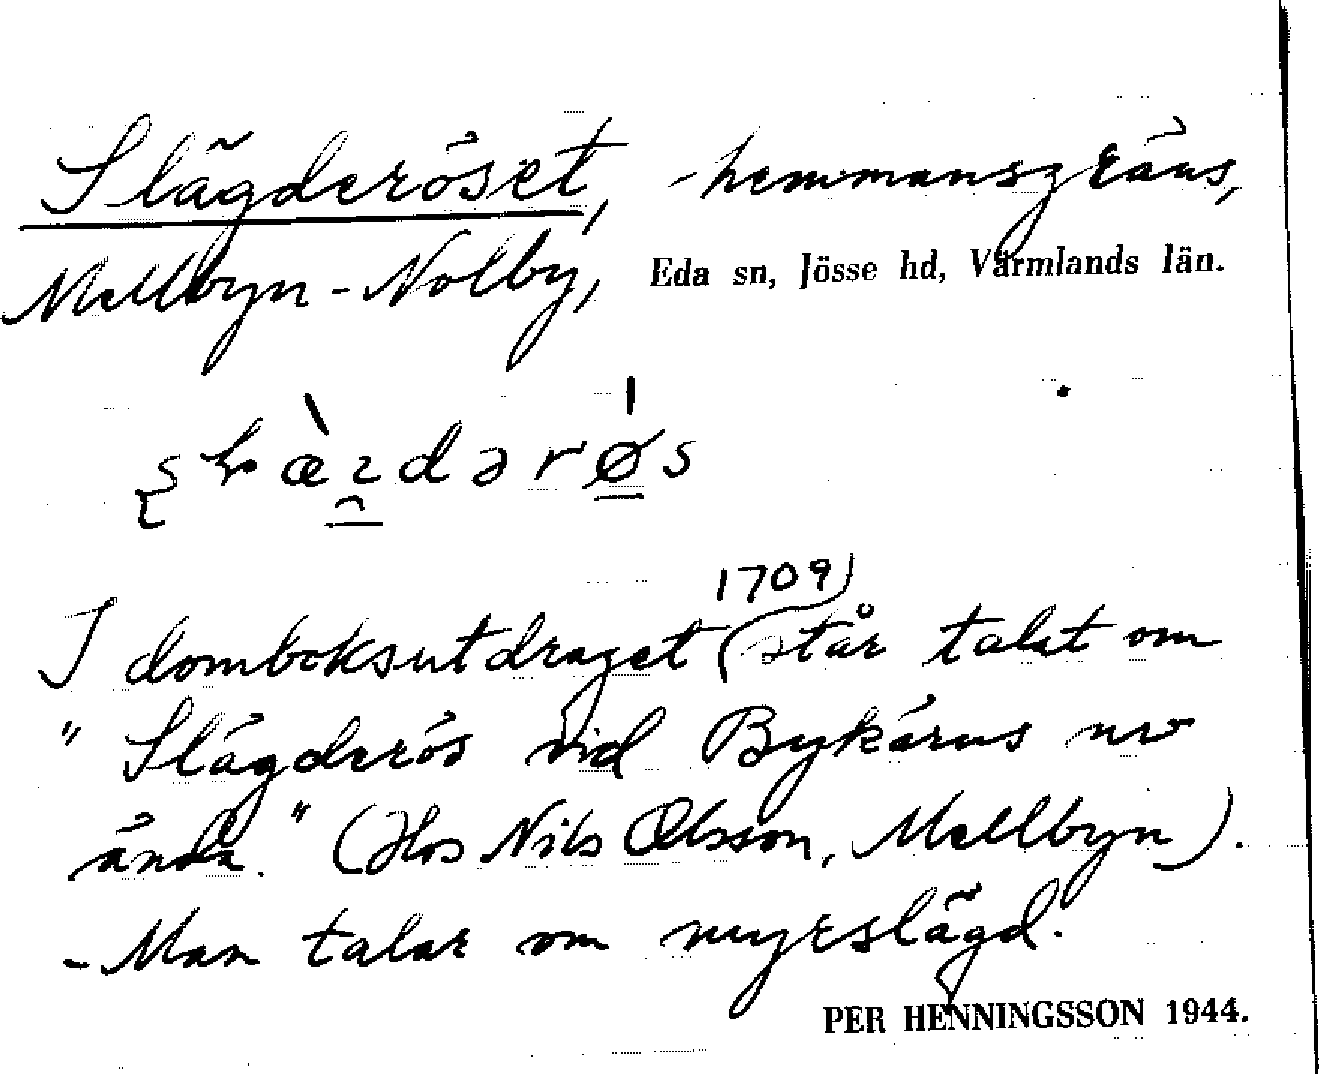 Slägderöset, - hemmansgräns,
Mellbyn - Nolby, Eda sn, Jösse hd, Värmlands län.
1709
I domboksutdraget står talat om
" Slägderös vid Bykärus nv
ända." (Hos Nils Olsson, Mellbyn).
- Man talar om myrslägd.
PER HENNINGSSON 1944.